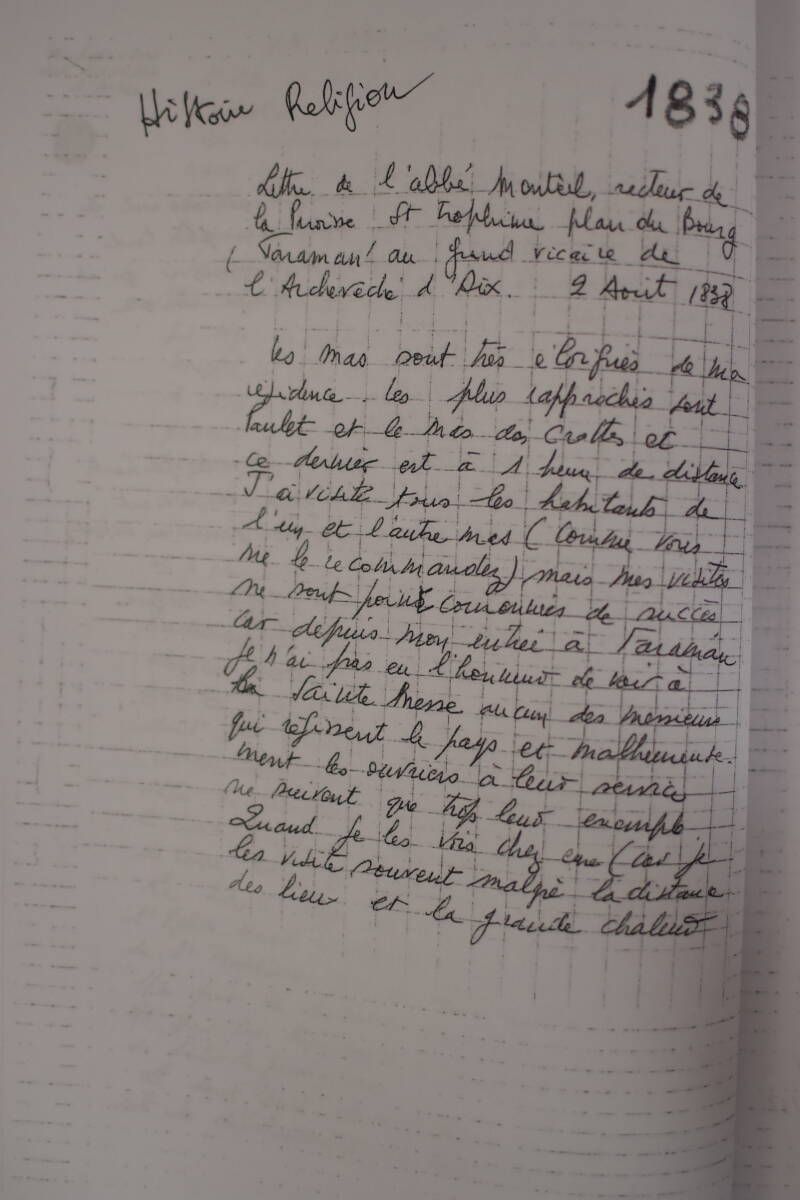 Histoire Religion 1838
Lettre de l'abbé Montèil, recteur de
la Paroisse St Trophime plan du Bourg
(Faraman) au grand vicaire de
l'Archevêché d'Aix. 2 Aout 1838
les mas sont très éloignés de ma
résidence. les plus rapprochés sont
Paulet et le mas des Crottes et
ce dernier est à 1 heure de distance
J'ai visité tous les habitants de
l'un et l'autre mas (comme vous
me le recommandez) mais mes visites
ne sont point couronnées de succès
car depuis mon entrée à Faraman
je n'ai pas eu l'honneur de voir à
la Sainte Messe aucun des messieurs
qui régissent le pays et malheureuse-
ment les ouvriers à leur service
ne suivent que trop leur exemple
Quand je les vois chez eux (car je
les visite souvent malgré la distance
des lieux et la grande chaleur